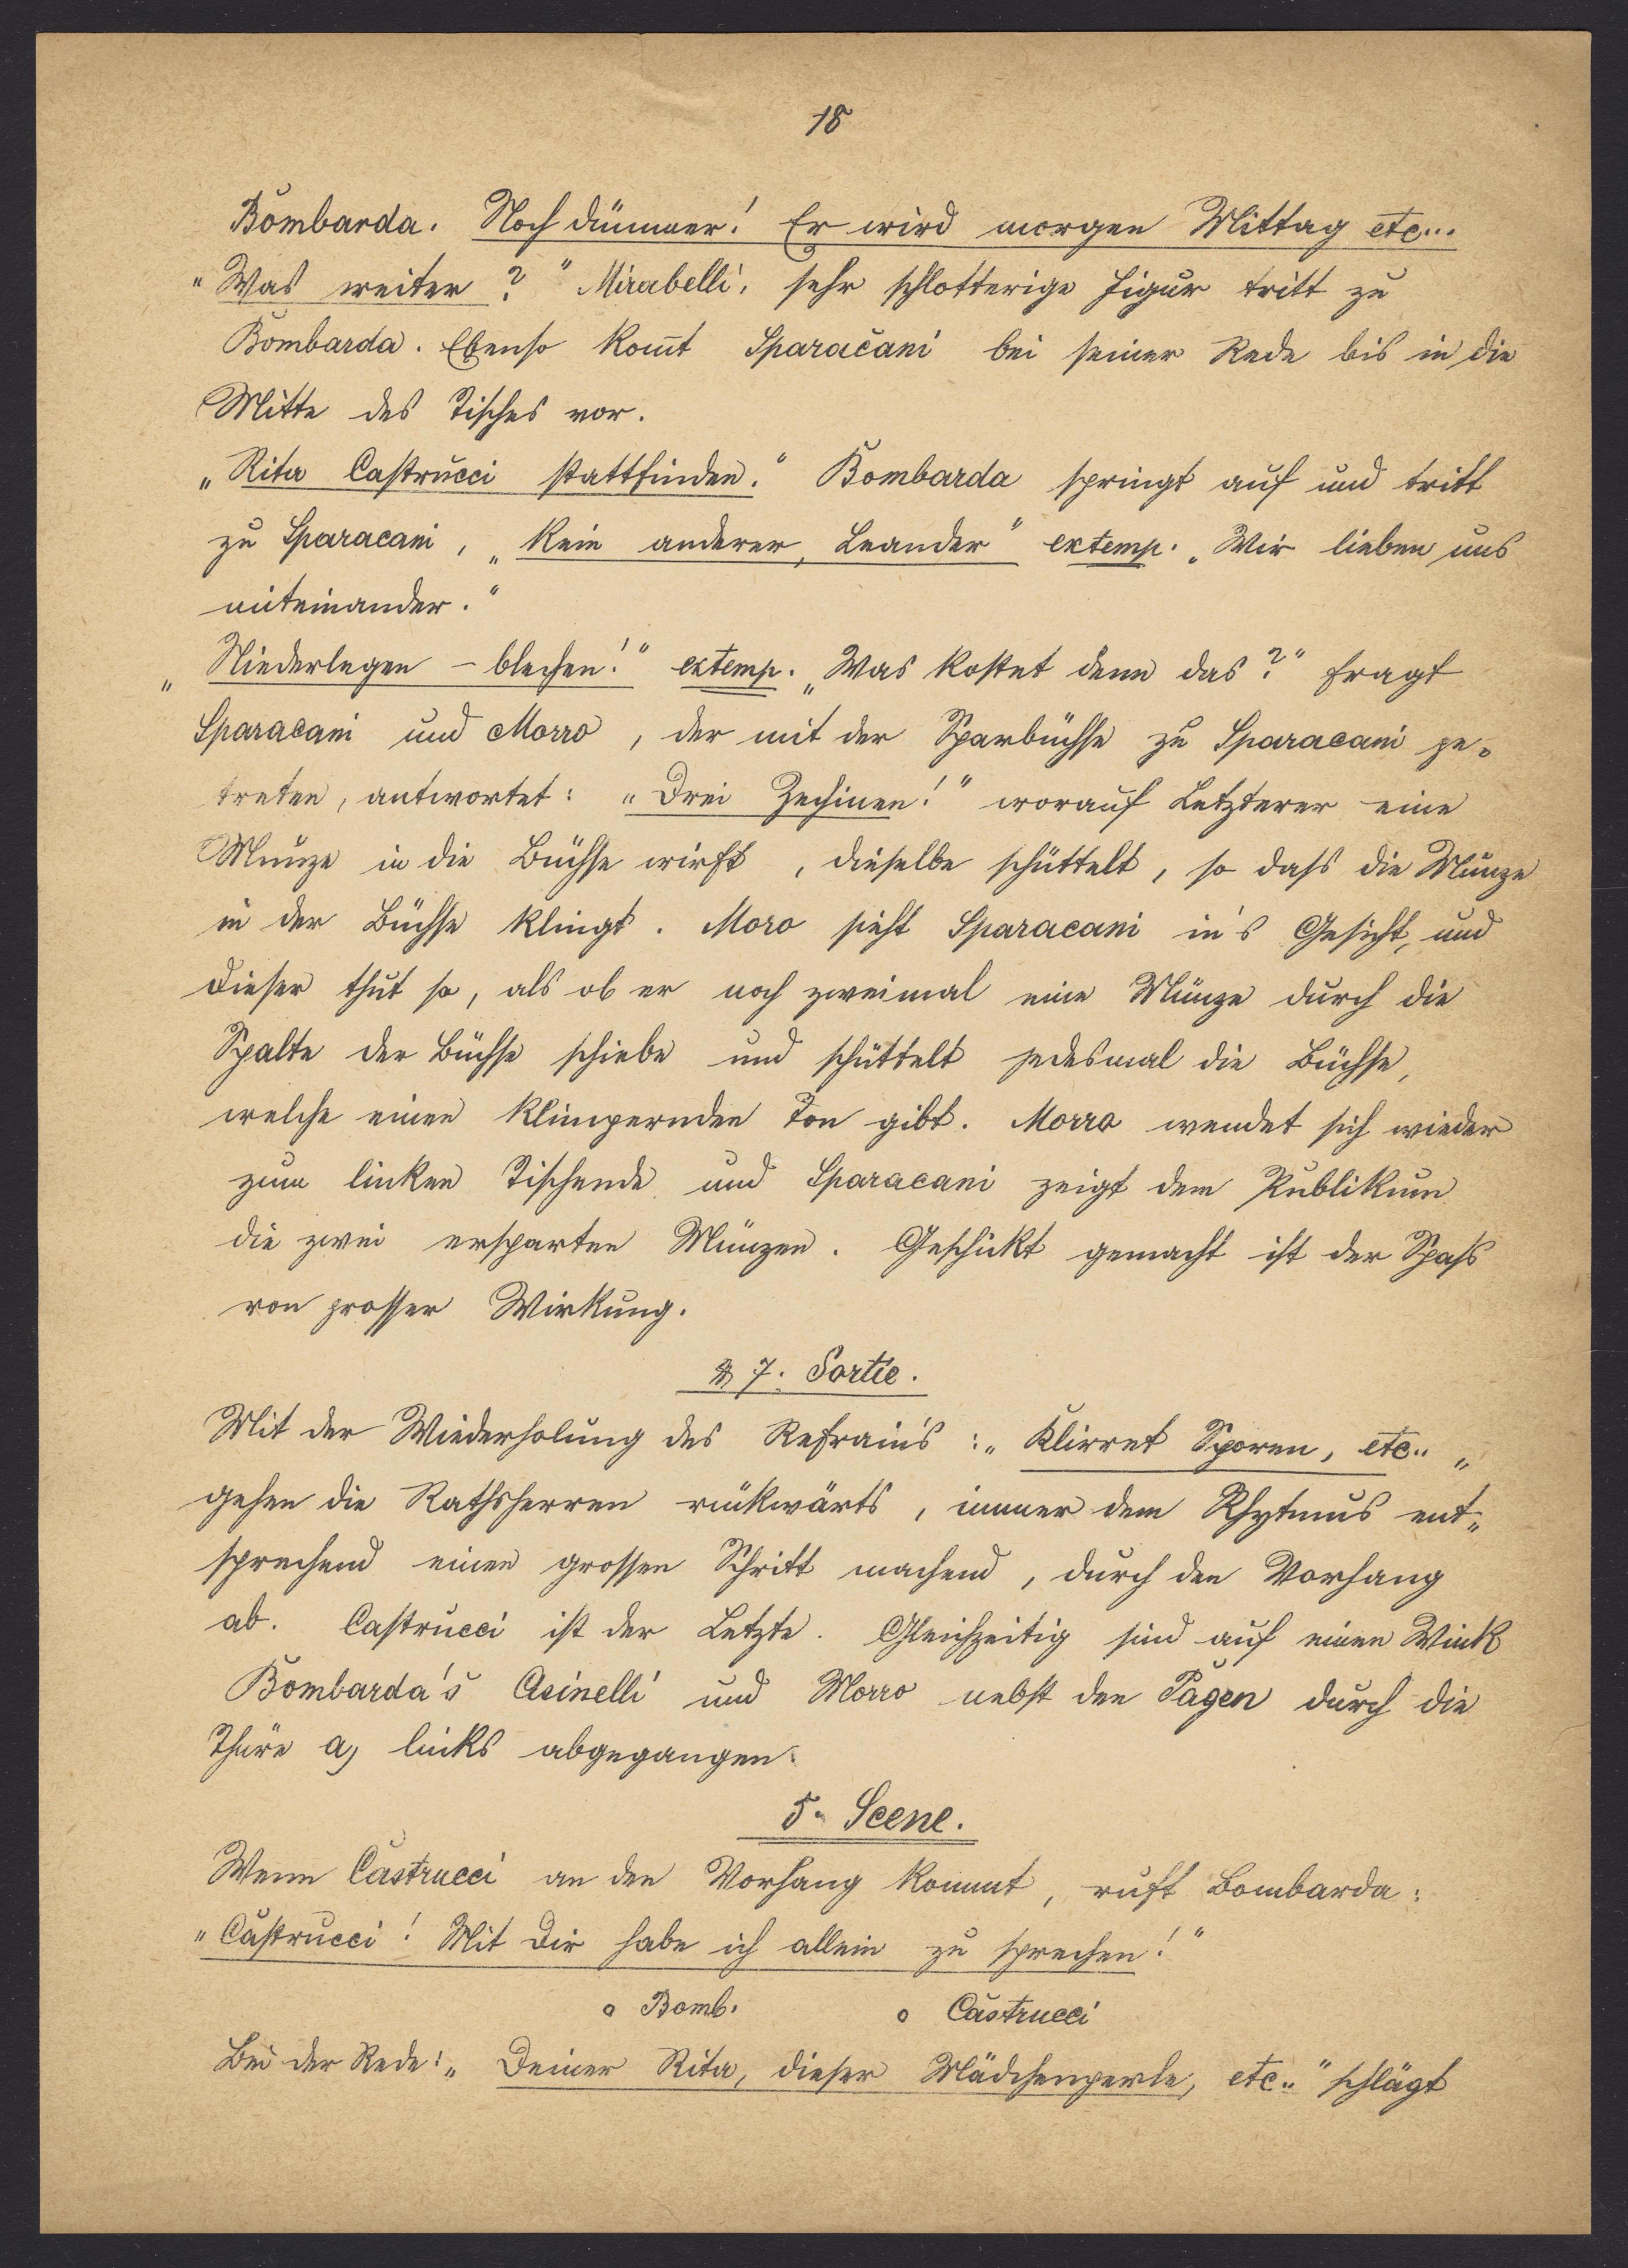 18
Bombarda. Noch dümmer! Er wird morgen Mittag etc...
"Was weiter?" Mirabelli, sehr schlotterige Figur tritt zu
Bombarda. Ebenso kom̅t Sparacani bei seiner Rede bis in die
Mitte des Tisches vor.
„Rita Castrucci stattfinden." Bombarda springt auf und tritt
zu Sparacani, „Kein anderer, Leander" extemp. „Wir lieben uns
miteinander."
„Niederlegen – blechen!" extemp. „Was kostet denn das?" fragt
Sparacani und Morro, der mit der Sparbüchse zu Sparacani ge=
treten, antwortet: „Drei Zechinen!" worauf Letzterer eine
Münze in die Büchse wirft, dieselbe schüttelt, so dass die Münze
in der Büchse klingt. Moro sieht Sparacani in's Gesicht, und
dieser thut so, als ob er noch zweimal eine Münze durch die
Spalte der Büchse schiebe und schüttelt jedesmal die Büchse,
welche einen klimpernden Ton gibt. Morro wendet sich wieder
zum linken Tischende und Sparacani zeigt dem Publikum
die zwei ersparten Münzen. Geschickt gemacht ist der Spass
von grosser Wirkung.
7. Sortie.
Mit der Wiederholung des Refrain's: „Klirret Sporen, etc.. "
gehen die Rathsherren rückwärts, immer dem Rhytmus ent=
sprechend einen grossen Schritt machend, durch den Vorhang
ab. Castrucci ist der Letzte. Gleichzeitig sind auf einen Wink
Bombarda's Asinelli und Morro nebst den Pagen durch die
Thüre a) links abgegangen.
5. Scene.
Wenn Castrucci an den Vorhang kommt, ruft Bombarda:
„Castrucci! Mit Dir habe ich allein zu sprechen!"
o Bomb. o Castrucci
Bei der Rede: „Deiner Rita, dieser Mädchenperle, etc.." schlägt